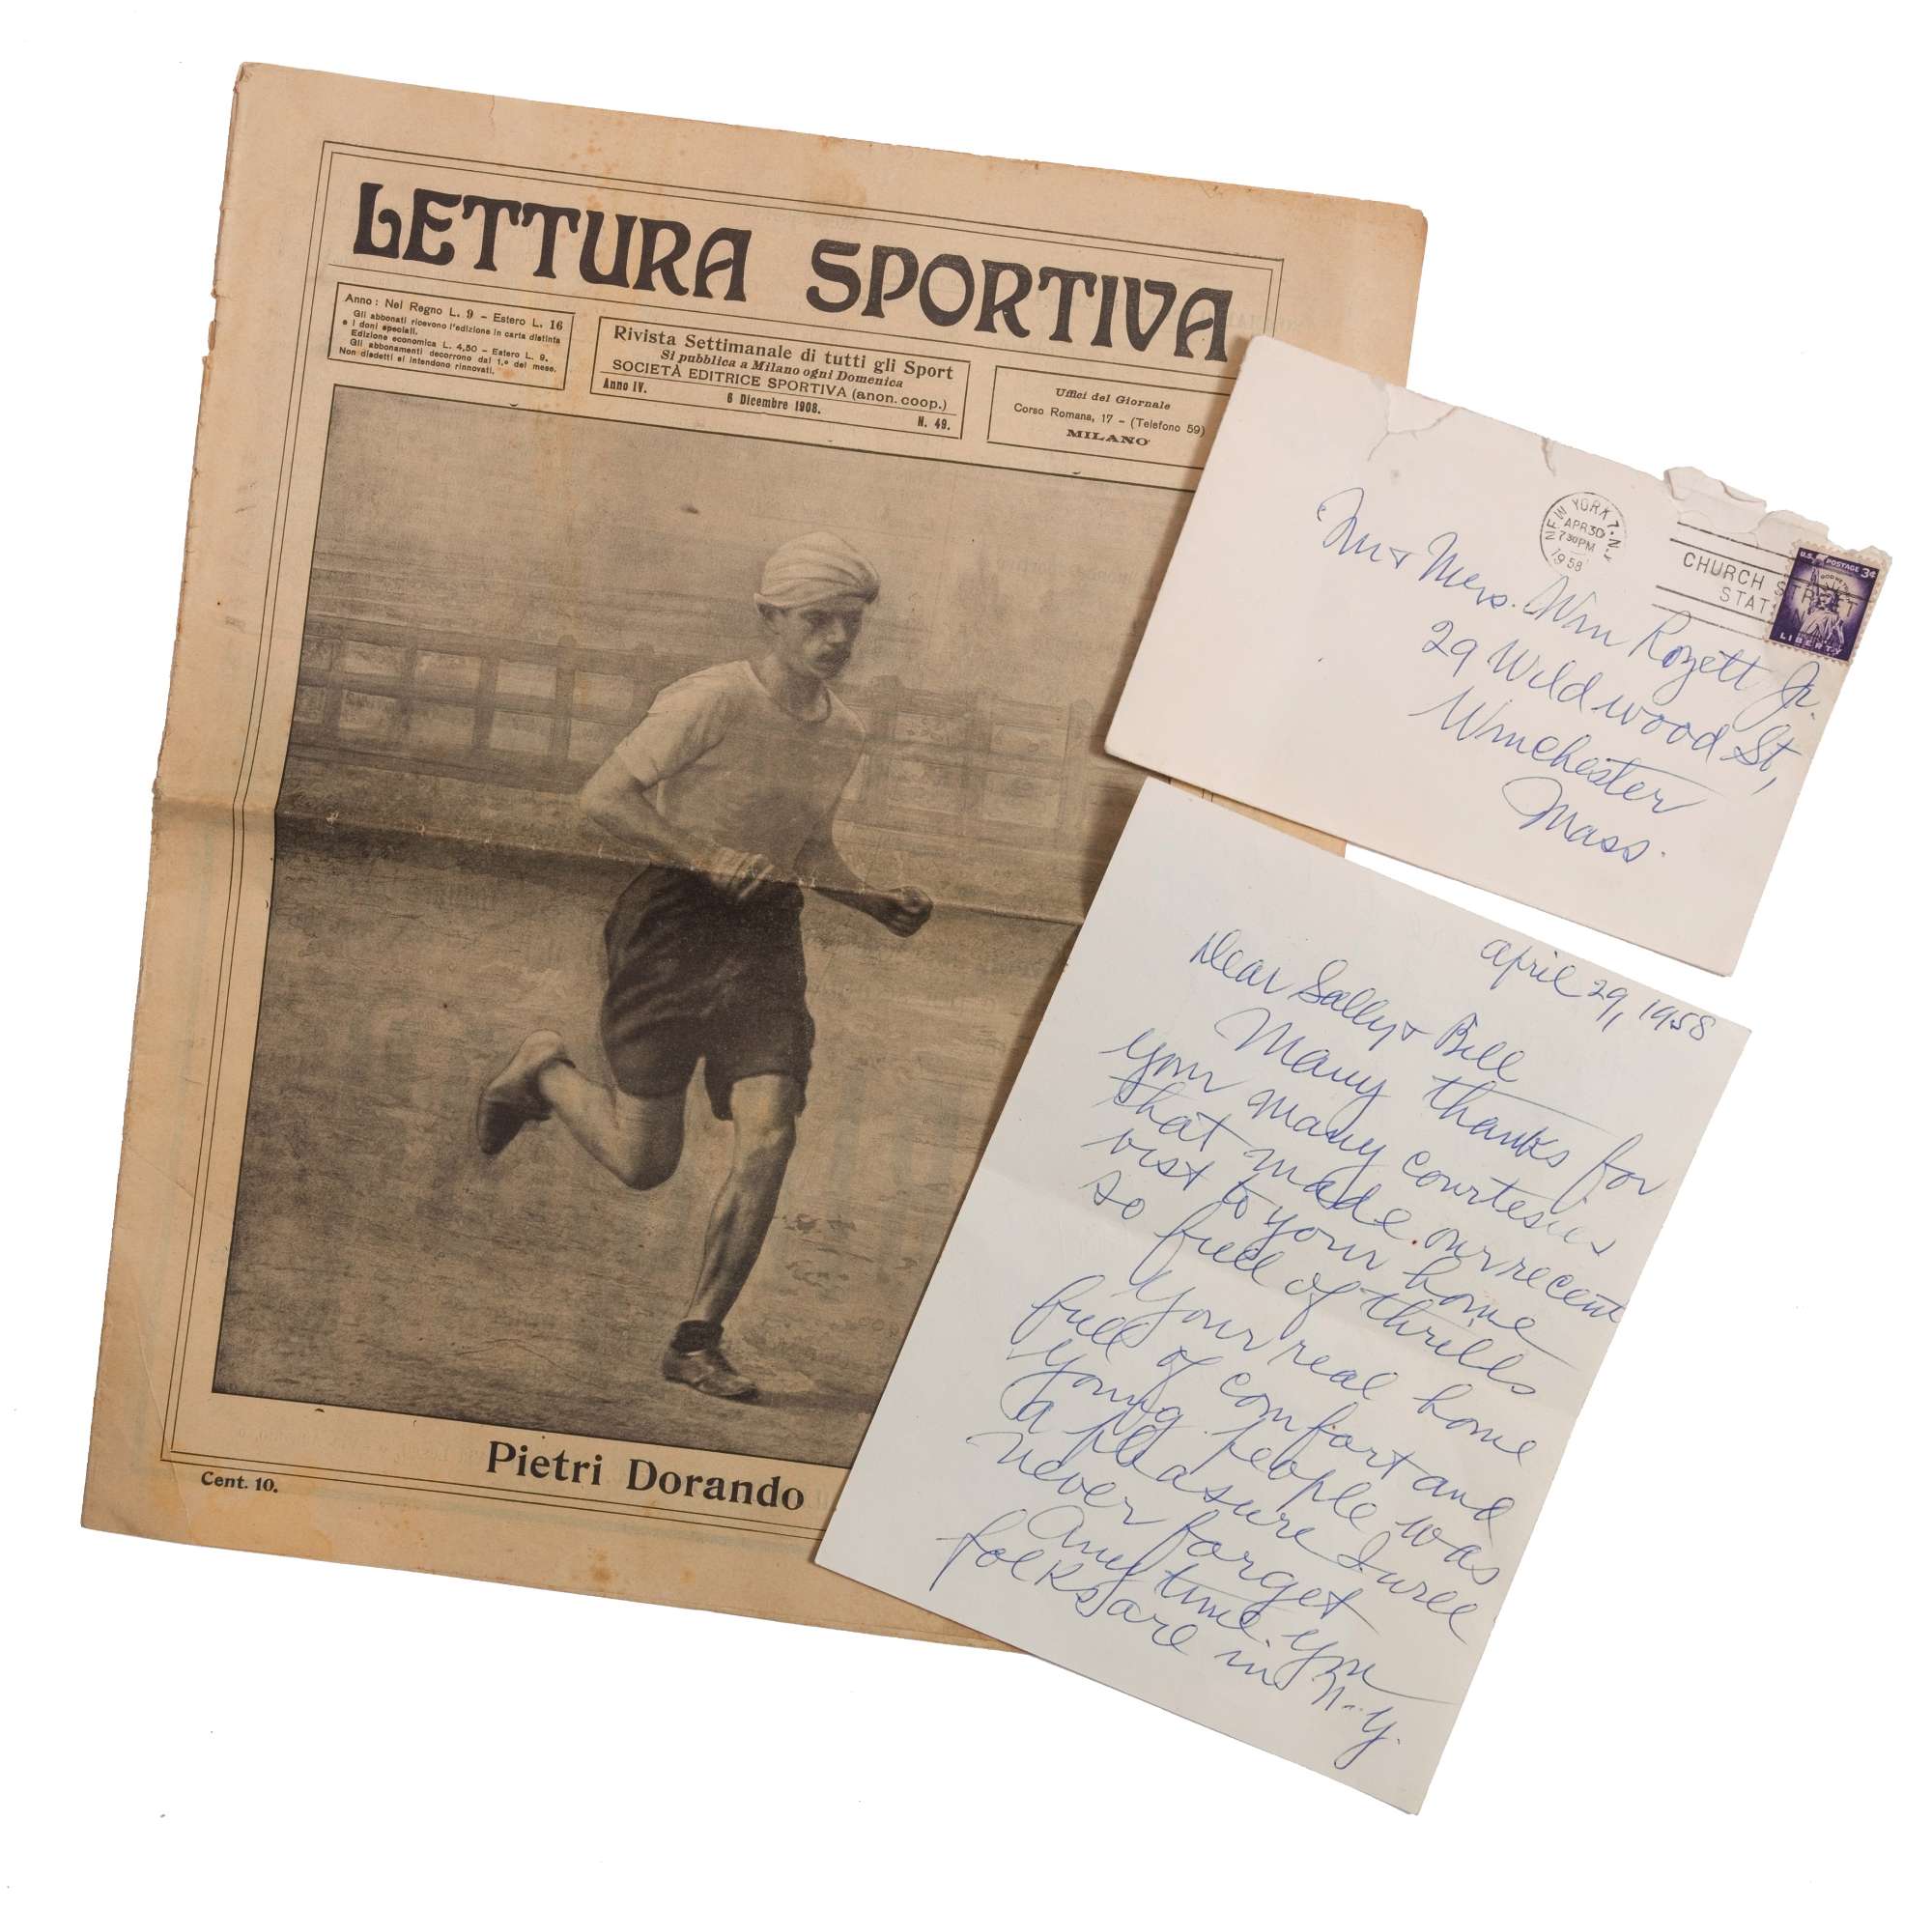 LETTURA SPORTIVA
Anno: Nel Regno L. 9 - Estero L. 16
Gli abbonati ricevono l'edizione in carta distinta
e i doni speciali.
Edizione economica L. 4,50 - Estero L. 9.
Gli abbonamenti decorrono dal 1.º del mese.
Non disdetti si intendono rinnovati.
Rivista Settimanale di tutti gli Sport
Si pubblica a Milano ogni Domenica
SOCIETÀ EDITRICE SPORTIVA (anon. coop.)
Anno IV. 6 Dicembre 1908. N. 49.
Uffici del Giornale
Corso Romana, 17 - (Telefono 59)
MILANO
Pietri Dorando
Cent. 10.
NEW YORK 7, N.Y.
APR 30
7 30 PM
1958
CHURCH STREET
STAT
U.S. POSTAGE 3¢
LIBERTY
Mr + Mrs. Wm Rozett Jr.
29 Wildwood St,
Winchester
Mass.
April 29, 1958
Dear Sally + Bill
Many thanks for
your many courtesies
that made our recent
vist to your home
so full of thrills
Your real home
full of comfort and
young people was
a pleasure I will
never forget
Any time you
folks are in N.Y.